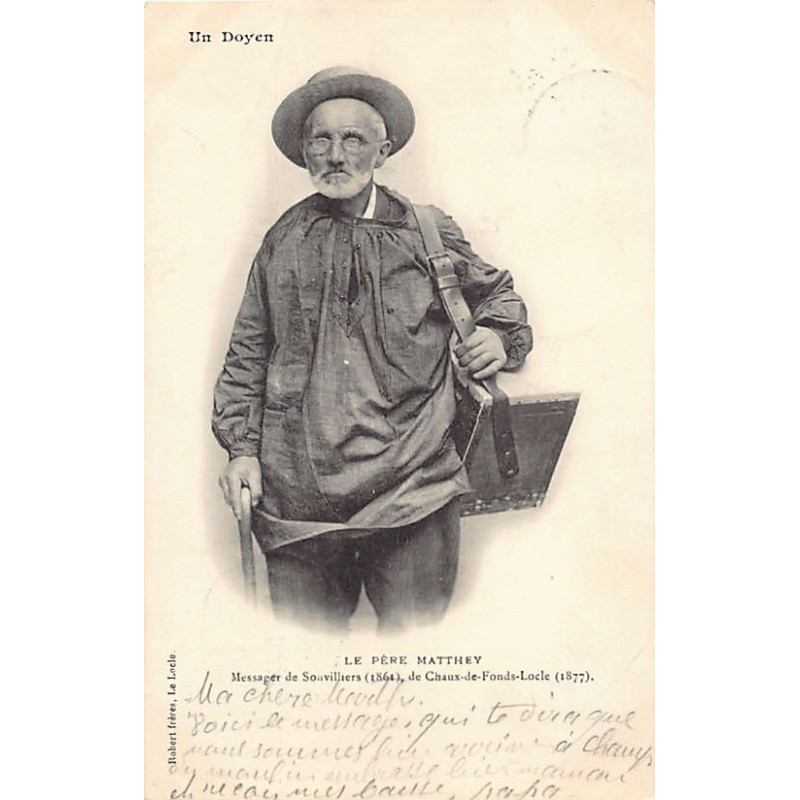 Un Doyen
LE PÈRE MATTHEY
Messager de Sonvilliers (1861), de Chaux-de-Fonds-Locle (1877).
Robert frères, Le Locle.
Ma chère
Voici le message, qui te dira que
nous sommes bien à Champ
du moulin embrasse bien maman
papa